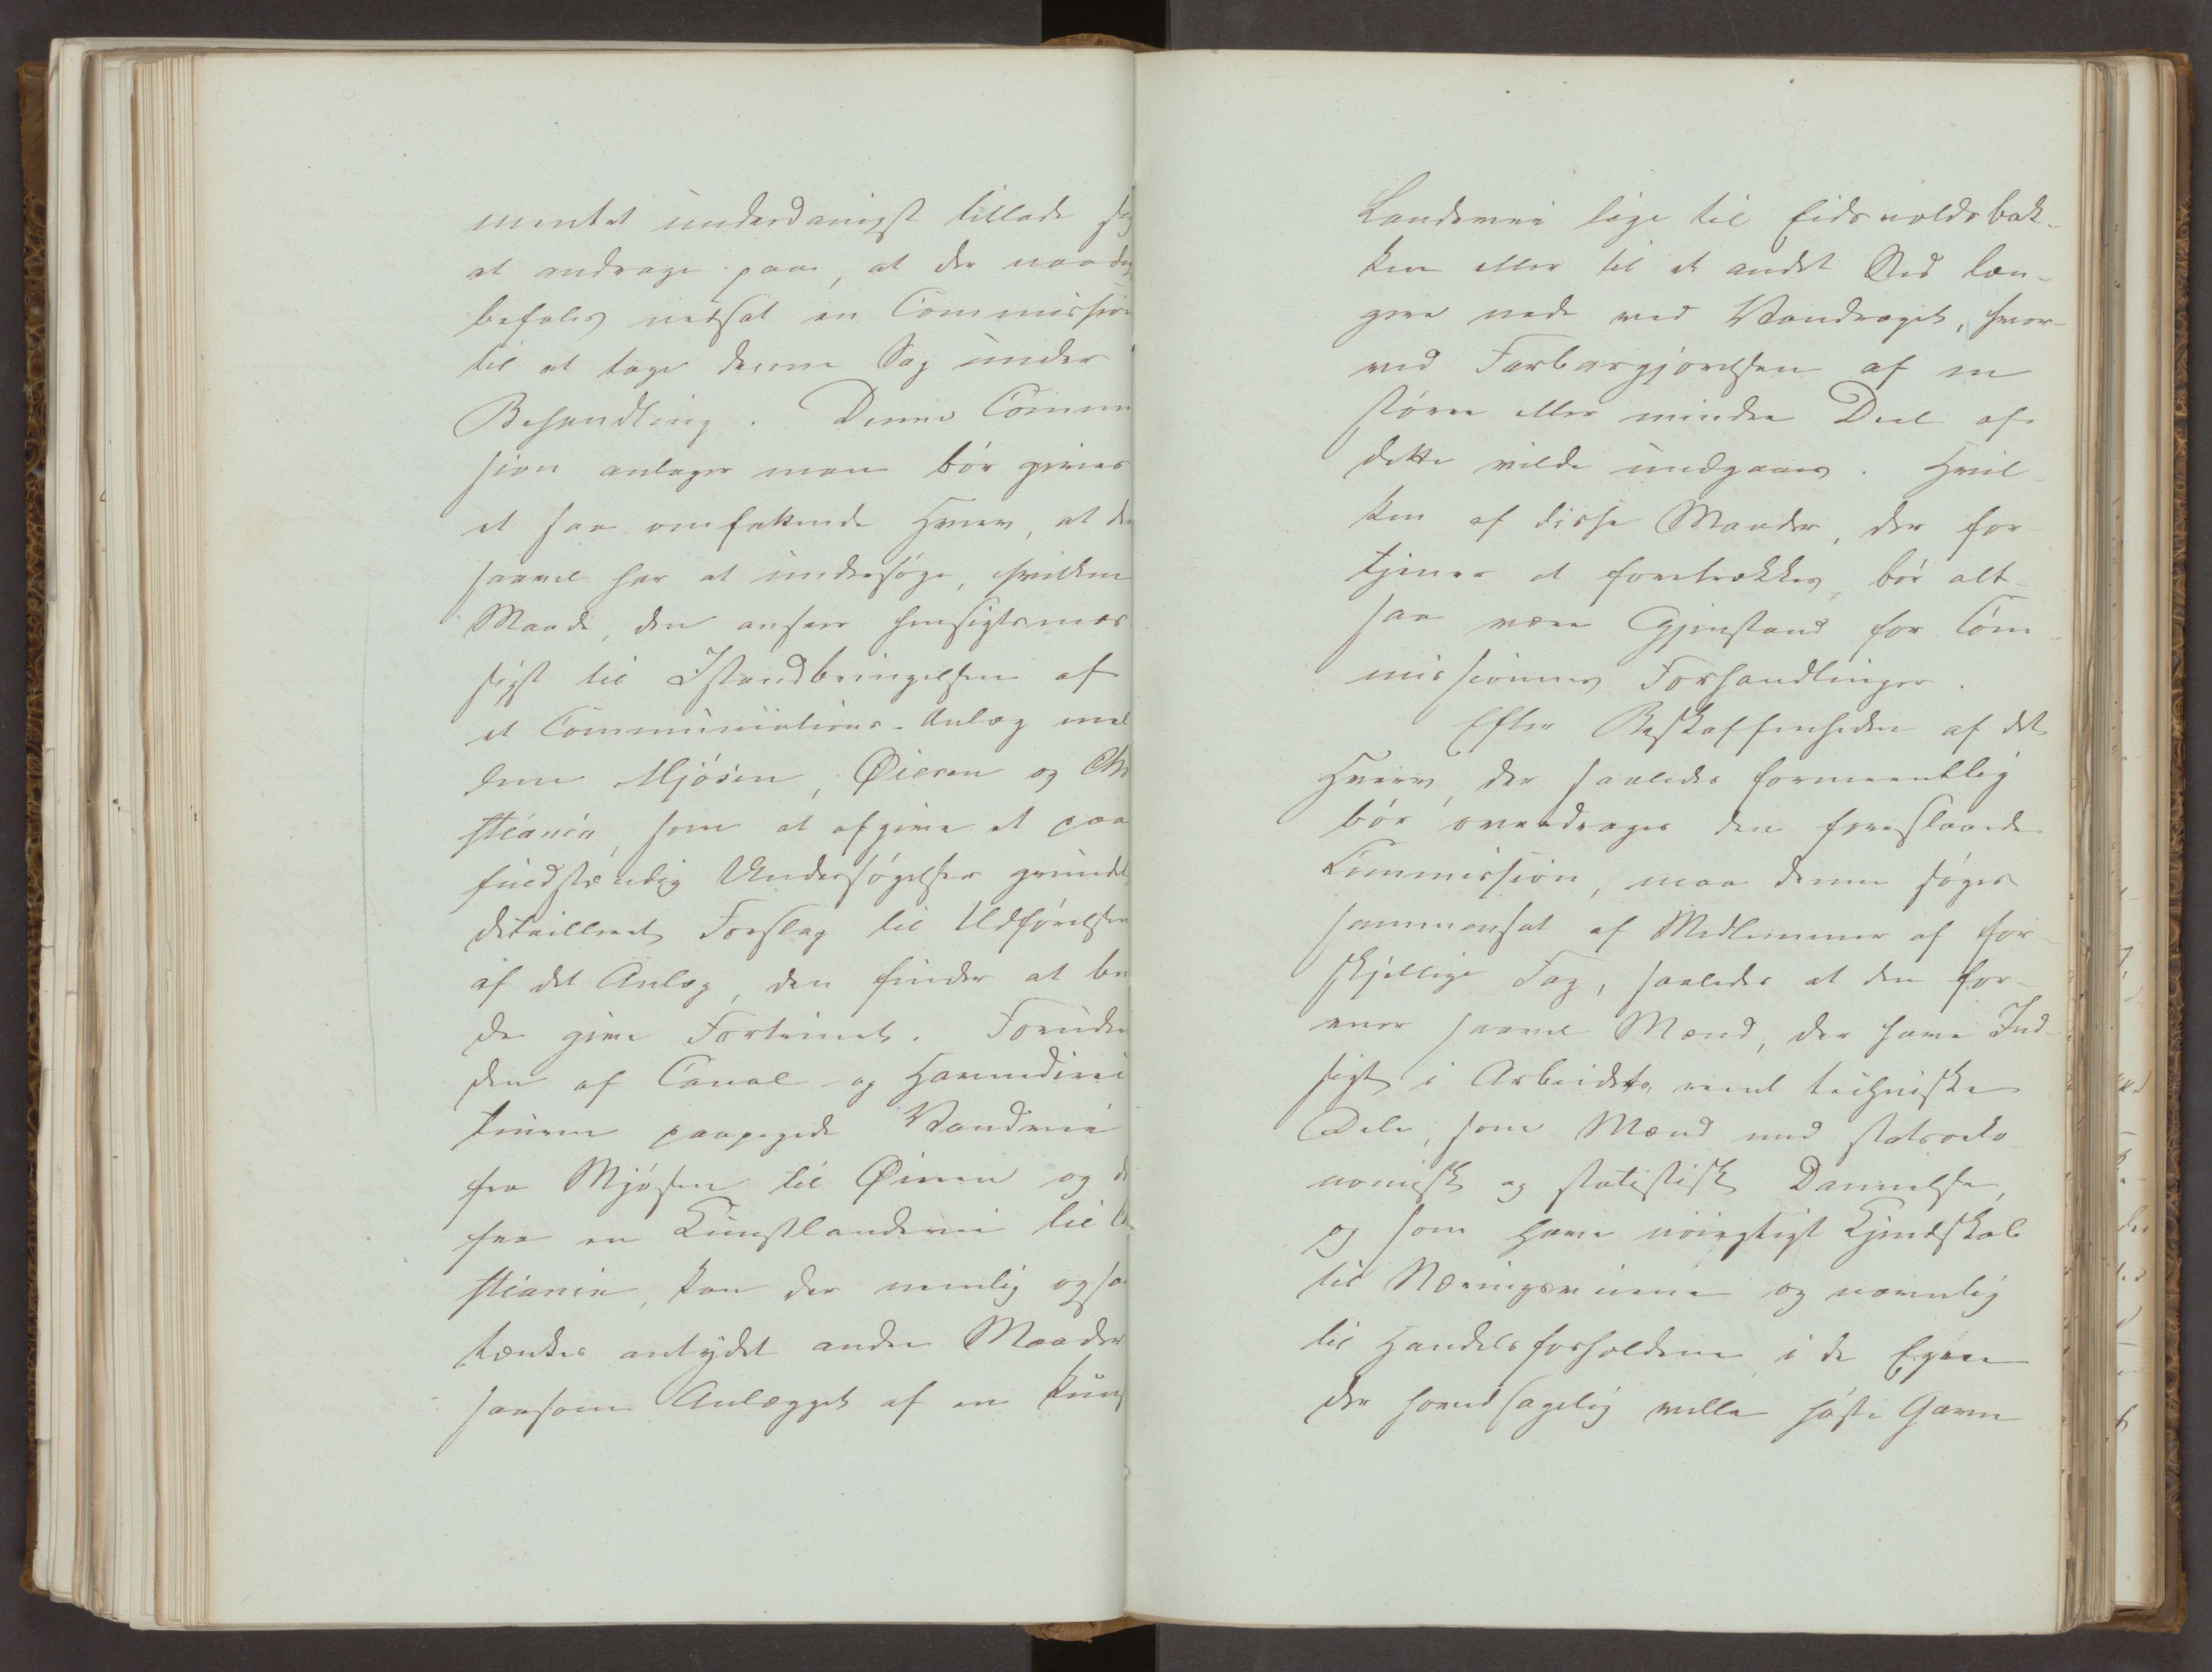 mentet underdanigst tillade sig
at andrage paa, at der naadig
befales nedsat en Commission
til at tage denne Sag under
Behandling. Denne Commis
sion antager man bør gives
et saa omfattende Hverv, at den
saavel har at undersøge, hvilken
Maade, den anseer hensigtsmæs
sigst til Istandbringelsen af
et Communications-Anlæg mel
lem Mjøsen, Øieren og Chri
stiania, som at afgive et paa
fuldstændig Undersøgelser grundet
detailleret Forslag til Udførelsen
af det Anlæg, den finder at bur
de give Fortrinet. Foruden
den af Canal og Havnedirec
teuren paapegede Vandvei
fra Mjøsen til Øieren og d
fra en Kunstlandevei til Chri
stiania, kan der nemlig ogsaa
tænkes antydet andre Maader
saasom Anlægget af en Kunst
Landevei lige til Eidsvoldsbak-
ken eller til et andet Sted læn-
gere nede ved Vandraget, hvor-
ved Farbargjørelsen af en
større eller mindre Deel af
dette vilde undgaaes. Hvil-
ken af disse Maader, der for
tjener at foretrækkes, bør alt-
saa være Gjenstand for Com-
missionens Forhandlinger.
Efter Beskaffenheden af det
Hverv, der saaledes formeentlig
bør overdrages den foreslaaede
Commission, maa denne søges
sammensat af Medlemmer af for-
skjellige Fag, saaledes at den for-
ener saavel Mænd, der have Ind-
sigt i Arbeidets reent techniske
Dele, som Mænd med statsoeko-
nomisk og statistisk Dannelse,
og som have nøiagtigt Kjendskab
til Næringsveiene og navnlig
til Handelsforholdene i de Egne
der hovedsagelig ville høste Gavn